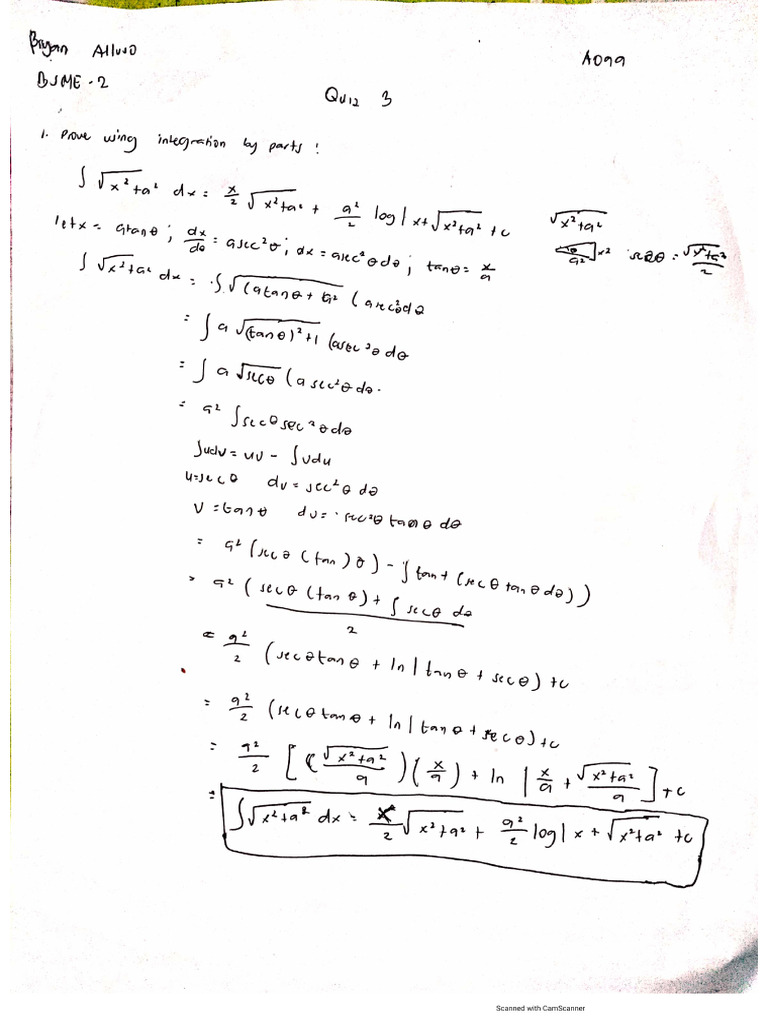 Bryan Alluso
A099
BSME - 2
Quiz 3
1. Prove using integration by parts :
∫ √x²+a² dx = x/2 √x²+a² + a²/2 log | x+√x²+a² + c
√x²+a²
let x = atanθ ; dx/dθ = asec²θ ; dx = asec²θdθ ; tanθ = x/a
θ a² x² secθ = √x²+a²/2
∫ √x²+a² dx = ∫ √(atanθ + a² (asec²θdθ
= ∫ a √(tanθ)²+1 (asec²θ dθ
= ∫ a √secθ (a sec²θ dθ.
= a² ∫secθ sec²θ dθ
∫udv = uv - ∫vdu
u=secθ dv = sec²θ dθ
v = tanθ du = sec²θ tanθ dθ
= a² (secθ (tan) θ) - ∫ tan+ (secθ tanθ dθ))
= a² ( secθ (tan θ) + ∫ secθ dθ / 2
= a²/2 (secθtanθ + ln | tanθ + secθ) +c
= a²/2 (secθ tanθ + ln | tanθ + secθ) +c
= a²/2 [ (√x²+a²/a ) (x/a) + ln | x/a + √x²+a²/a ] +c
= ∫ √x²+a² dx = x/2 √x²+a² + a²/2 log | x + √x²+a² +c
Scanned with CamScanner